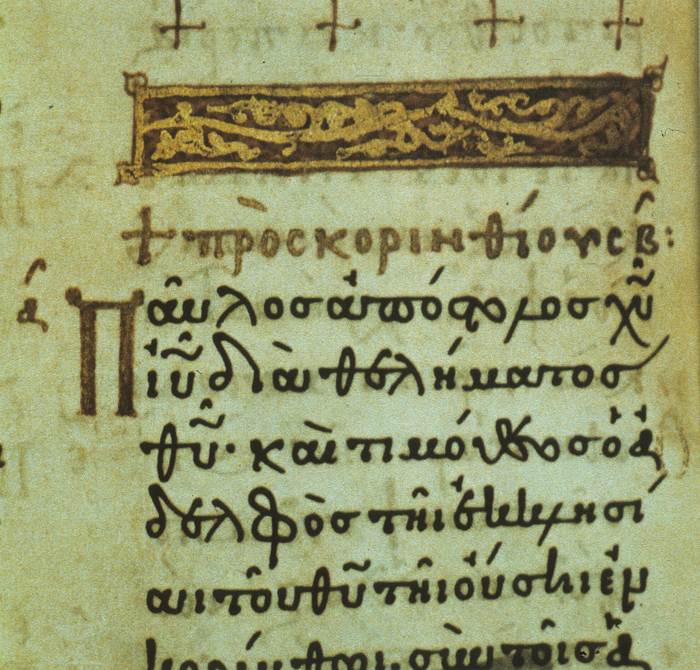 + πρὸς κορινθίους β̅:
α̅
Παῦλος ἀπόστολος χ̅υ̅
ἰ̅υ̅ διὰ θελήματος
θ̅υ̅· καὶ τιμόθεος ὁ ἀ
δελφὸς τῆι ἐκκλησί
αι τοῦ θ̅υ̅ τῆι οὔσηι ἐν
κορίνθωι. σὺν τοῖς ἁ